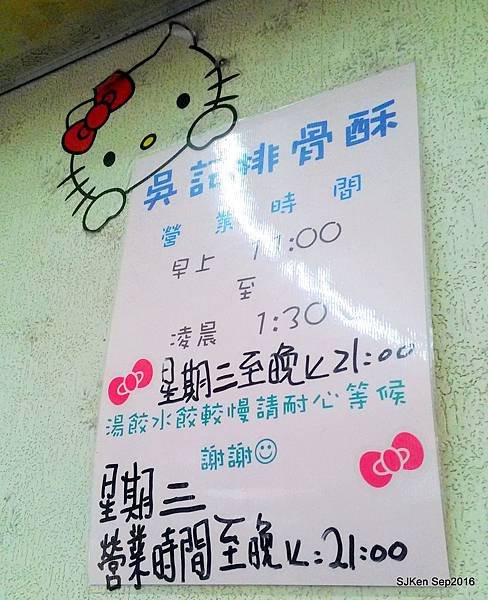 吳記排骨酥
營業時間
早上 11:00
至
凌晨 1:30
星期三至晚上21:00
湯餃水餃較慢請耐心等候
謝謝☺
星期三
營業時間至晚上:21:00
SJKen Sep2016